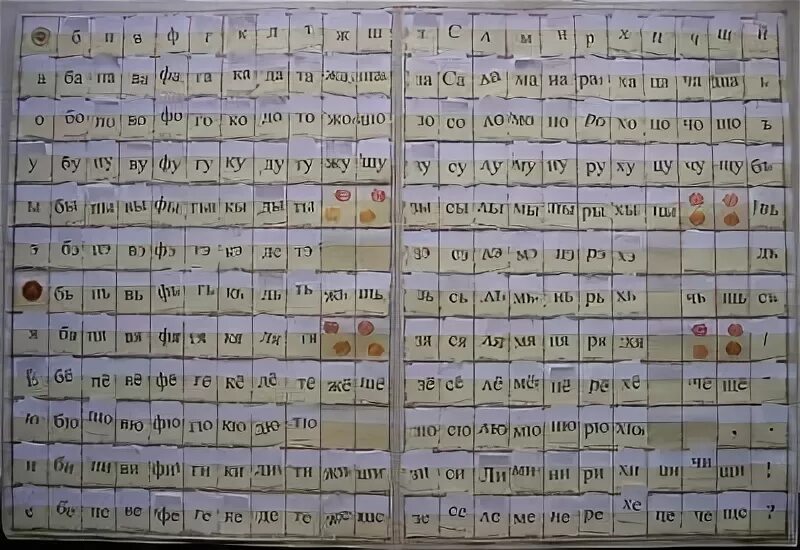 б п в ф г к л т ж ш з С л м н р х ц ч щ й
а ба па ва фа га ка да та жа ша за Са ла ма на ра ха ца ча ща ь
о бо по во фо го ко до то жо шо зо со ло мо но ро хо цо чо що ъ
у бу пу ву фу гу ку ду ту жу шу зу су лу му ну ру ху цу чу щу бь
ы бы пы вы фы гы кы ды ты зы сы лы мы ны ры хы цы вь
э бэ пэ вэ фэ гэ кэ де тэ зэ сэ лэ мэ нэ рэ хэ дь
бь пь вь фь гь кь дь ть жь шь зь сь ль мь нь рь хь чь щь сь
я бя пя вя фя гя кя дя тя зя ся ля мя ня ря хя /
ё бё пё вё фё гё кё дё тё жё шё зё сё лё мё нё рё хё чё щё -
ю бю пю вю фю гю кю дю тю зю сю лю мю ню рю хю , .
и би пи ви фи ги ки ди ти жи ши зи си Ли ми ни ри хи ци чи щи !
е бе пе ве фе ге ке де те же ше зе се ле ме не ре хе це че ще ?